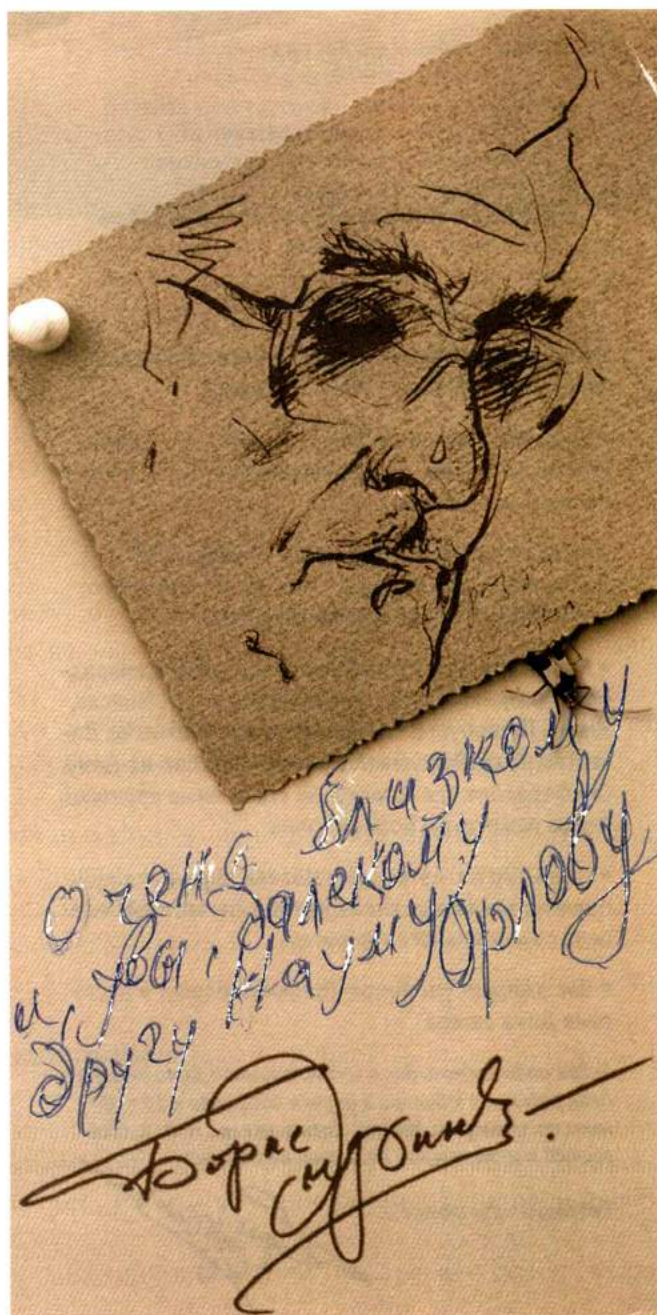 очень близкому
и, увы, далекому
другу Науму Орлову
Борис